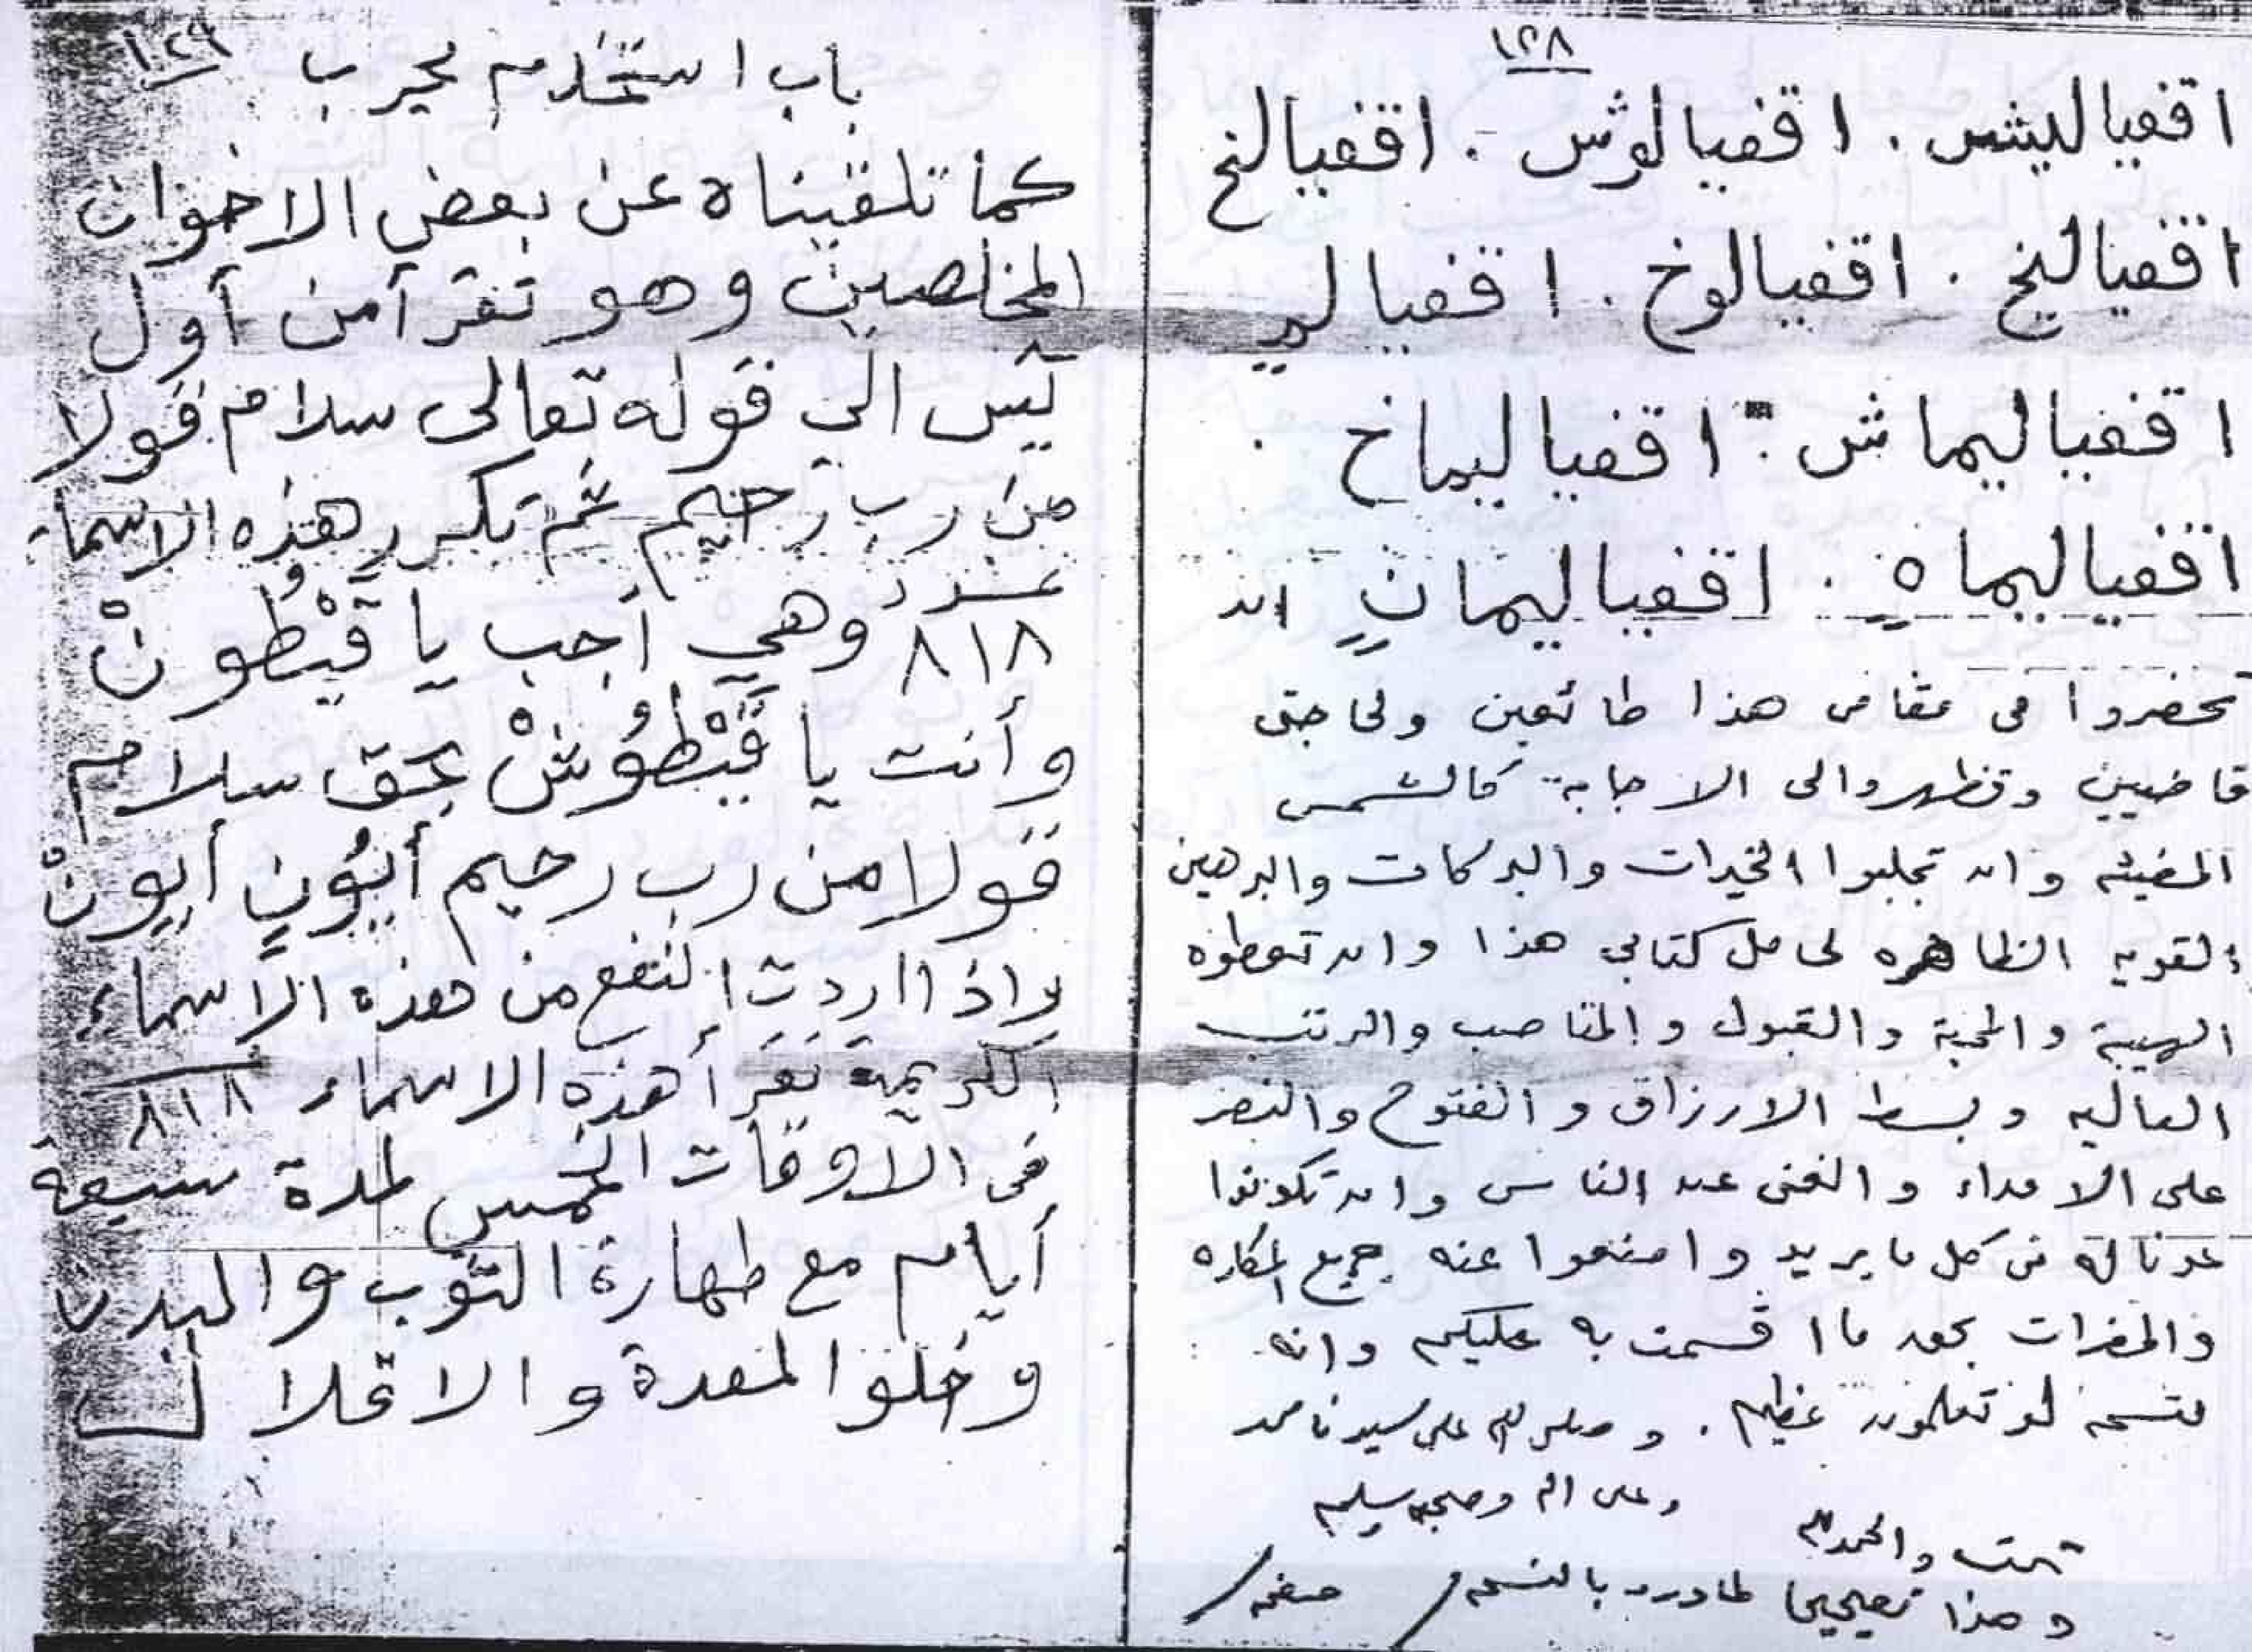 ١٢٨
اقفياليش . اقفيالوش . اقفيالنخ
اقفياليخ . اقفيالوخ . اقفيالير
اقفياليماش . اقفياليماخ .
اقفياليماه . اقفياليمان ان
تحضروا فى مقامى هذا طائعين ولحاجتى
قاضيين وتظهروا لى الاجابة كالشمس
المضيئه وان تجلبوا الخيرات والبركات والبرهين
القويه الظاهره لحامل كتابى هذا وان تعطوه
الهيبة والمحبة والقبول والمناصب والرتب
العاليه وبسط الارزاق والفتوح والنصر
على الاعداء والغنى عن الناس وان تكونوا
عونا له فى كل ما يريد وامنعوا عنه جميع المكاره
والمضرات بحق ما اقسمت به عليكم وانه
قسم لو تعلمون عظيم . وصلى الله على سيدنا محمد
وعلى اله وصحبه وسلم
تمت والحمد لله
وهذا تصحيحا لما ورد بالنسخه / صفحه /
١٢٩
باب استخدام مجرب
كما تلقيناه عن بعض الاخوان
المخلصين وهو تقرأ من أول
يس الي قوله تعالى سلام قولا
من رب رحيم ثم تكرر هذه الاسماء
عدد ٨١٨ وهي أجب يا قَيْطُونْ
وأنت يا قَيْطُوُشْ بحق سلام
قولا من رب رحيم أيُونٍ أيونْ
واذا اردت النفع من هذه الاسماء
الكريمة تقرأ هذه الاسماء ٨١٨
فى الاوقات الخمس لمدة سبعة
أيام مع طهارة الثوب والبدن
وخلو المعدة والاقلال